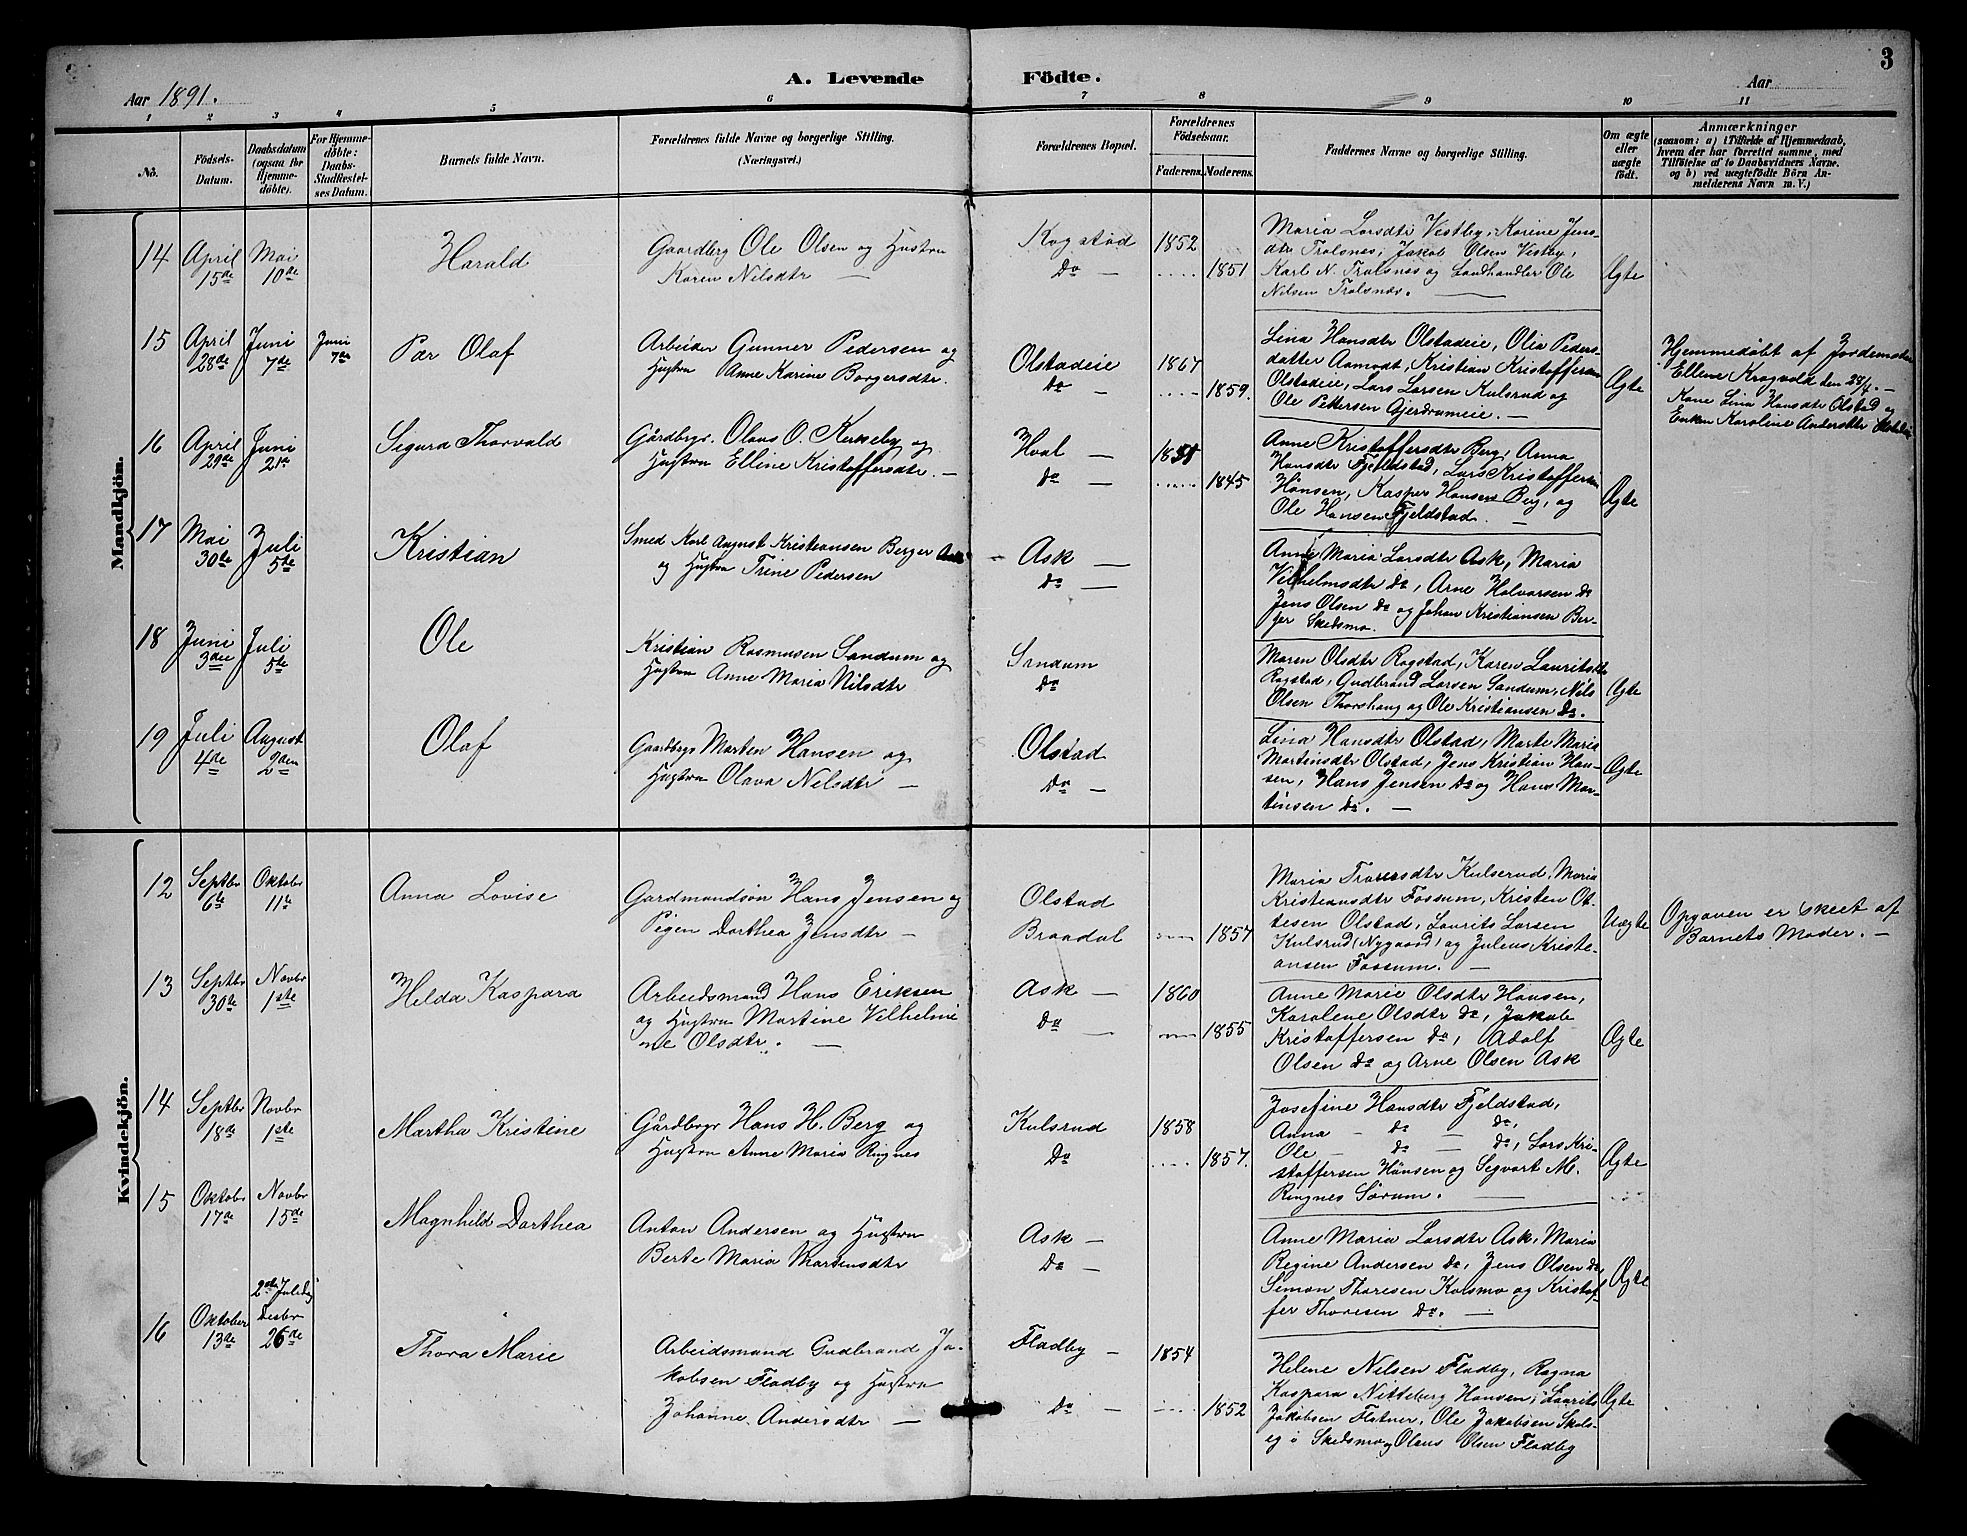 3
A. Levende Födte.
Aar 1891.
Aar
1 2 3 4 5 6 7 8 9 10 11
No.
Födsels-Datum.
Daabsdatum (ogsaa for Hjemme-döbte).
For Hjemme-döbte: Daabs-Stadfæstel-ses Datum.
Barnets fulde Navn.
Forældrenes fulde Navne og borgerlige Stilling.
(Næringsvei.)
Forældrenes Bopæl.
Forældrenes Födselsaar.
Faderens.
Moderens.
Faddernes Navne og borgerlige Stilling.
Om ægte eller uægte födt.
Anmærkninger
(saasom: a) i Tilfælde af Hjemmedaab,
hvem der har forrettet samme, med
Tilföielse af to Daabsvidners Navne.
og b) ved uægtefödte Börn An-
melderens Navn m. V.)
Mandkjön.
14 April 15de Mai 10de
Harald
Gaardbrg Ole Olsen og Hustru
Karen Nilsdtr —
Kogstad 1852
Do — 1851
Maria Larsdtr Vestby, Karine Jens-
dtr Trolsnes, Jakob Olsen Vestby,
Karl N. Trolsnes og Landhandler Ole
Nilsen Trolsnæs.
Ægte
15 April 28de Juni 7de Juni 7de
Per Olaf
Arbeider Gunner Pedersen og
Hustru Anne Karine Borgersdtr.
Olstadeie 1867
Do — 1859.
Lina Hansdtr Olstadeie, Olia Peders-
datter Aamodt, Kristian Kristoffersen
Olstadeie, Lars Larsen Kulsrud og
Ole Pettersen Gjerdrumeie. —
Ægte
Hjemmedøbt af Jordemoder
Ellene Krogvold den 28/4. —
Kone Lina Hansdtr Olstad og
Enken Karoline Andersdtr
16 April 29de Juni 21de
Sigurd Thorvald
Gårdbgr. Olaus O. Kirkeby og
Hustru Elline Kristoffersdtr. —
Hval —
Do — 1845
Anne Kristoffersdtr Berg, Anna
Hansdtr Fjeldstad, Lars Kristoffersen
Hönsen, Kasper Hansen Berg, og
Ole Hansen Fjeldstad. —
Ægte
17 Mai 30te Juli 5te
Kristian
Smed Karl August Kristiansen Berger
og Hustru Trine Pedersen
Ask —
Do —
Anne Maria Larsdtr Ask, Maria
Vilhelmsdtr Do, Arne Halvorsen Do
Jens Olsen Do og Johan Kristiansen Ber-
ger Skedsmo.
18 Juni 3die Juli 5te
Ole
Kristian Rasmusen Sandum og
Hustru Anne Maria Nilsdtr
Sandum
Do
Maren Olsdtr Rogstad, Karen Lauritsdtr
Rogstad, Gudbrand Larsen Sandum, Nils
Olsen Thorshaug og Ole Kristiansen Do.
Ægte
19 Juli 4de August 2den
Olaf
Gaardbrgs Marten Hansen og
Hustru Olava Nilsdtr —
Olstad
Do —
Lina Hansdtr Olstad, Marte Maria
Martinsdtr Olstad, Jens Kristian Han-
sen, Hans Jensen Do og Hans Mar-
tinsen Do. —
Ægte
Kvindekjön.
12 Septbr 6te Oktobr 11te
Anna Lovise
Gardmandsön Hans Jensen og
Pigen Dorthea Jensdtr —
Olstad
Braadal 1857
Maria Kulsrud, Maria
Kristiansdtr Fossum, Kristen Ot-
tesen Olstad, Laurits Larsen
Kulsrud (Nygaard) og Julius Kristi-
ansen Fossum. —
Uægte
Opgaven er skeet af
Barnets Moder. —
13 Septbr 30te Novbr 1ste
Hilda Kaspara
Arbeidsmand Hans Eriksen
og Hustru Martine Vilhelmi
ne Olsdtr. —
Ask — 1860
Do — 1855
Anne Marie Olsdtr Hansen,
Karolene Olsdtr Do, Jakob
Kristoffersen Do, Adolf
Olsen Do og Arne Olsen Ask
Ægte
14 Septbr 18de Novbr 1ste
Martha Kristine
Gårdbgr Hans H. Berg og
Hustru Anne Maria Ringnes
Kulsrud 1858
Do 1857.
Josefine Hansdtr Fjeldstad,
Anna — do — do,
Ole — do — do, Lars Kri-
stoffersen Hönsen og Segvart M.
Ringnes Sörum. —
Ægte
15 Oktobr 17de Novbr 15de
Magnhild Dorthea
Anton Andersen og Hustru
Berte Maria Martinsdtr
Ask —
Do —
Anne Maria Larsdtr Ask, Maria
Regine Andersen Do, Jens Olsen Do,
Simon Thoresen Kolsmo og Kristof-
fer Thoresen Do. —
Ægte
16 Oktober 13de 2den Juledag Desbr 26de
Thora Marie
Arbeidsmand Gudbrand Ja-
kobsen Fladby og Hustru
Johanne Andersdtr —
Fladby — 1854
Do — 1852
Helene Nilsen Fladby, Ragna
Kaspara Nitteberg Hansen, Laurits
Jakobsen Flatner, Ole Jakobsen Skols-
eg i Skedsmo og Olaus Olsen Fladby
Ægte